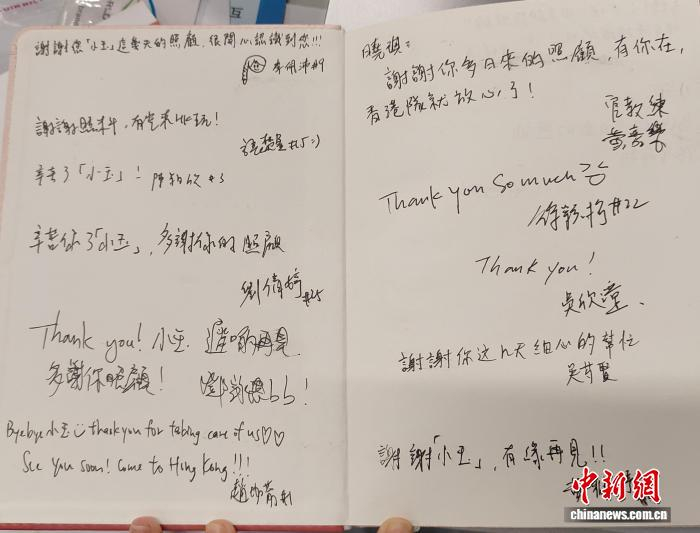 謝謝您「小玉」這幾天的照顧，很開心認識到您!!!
#9
謝謝照料，有空來HK玩！
#15 :)
辛苦了「小玉」！ 陳 #3
辛苦你了「小玉」，多謝你的照顧
劉倩婷 #25
Thank you! 小玉. 有
再見
多謝你照顧！
bb！
Byebye 小玉 thank you for taking care of us♡♡
See you soon! Come to Hong Kong!!!
趙
曉琪：
謝謝你多日來的照顧，有你在，
香港隊就放心了！
官教練
Thank you so much
徐 #22
Thank you!
吳欣潼.
謝謝你这几天细心的幫忙
吳
謝謝「小玉」，有緣再見!!
中新網
chinanews.com.cn